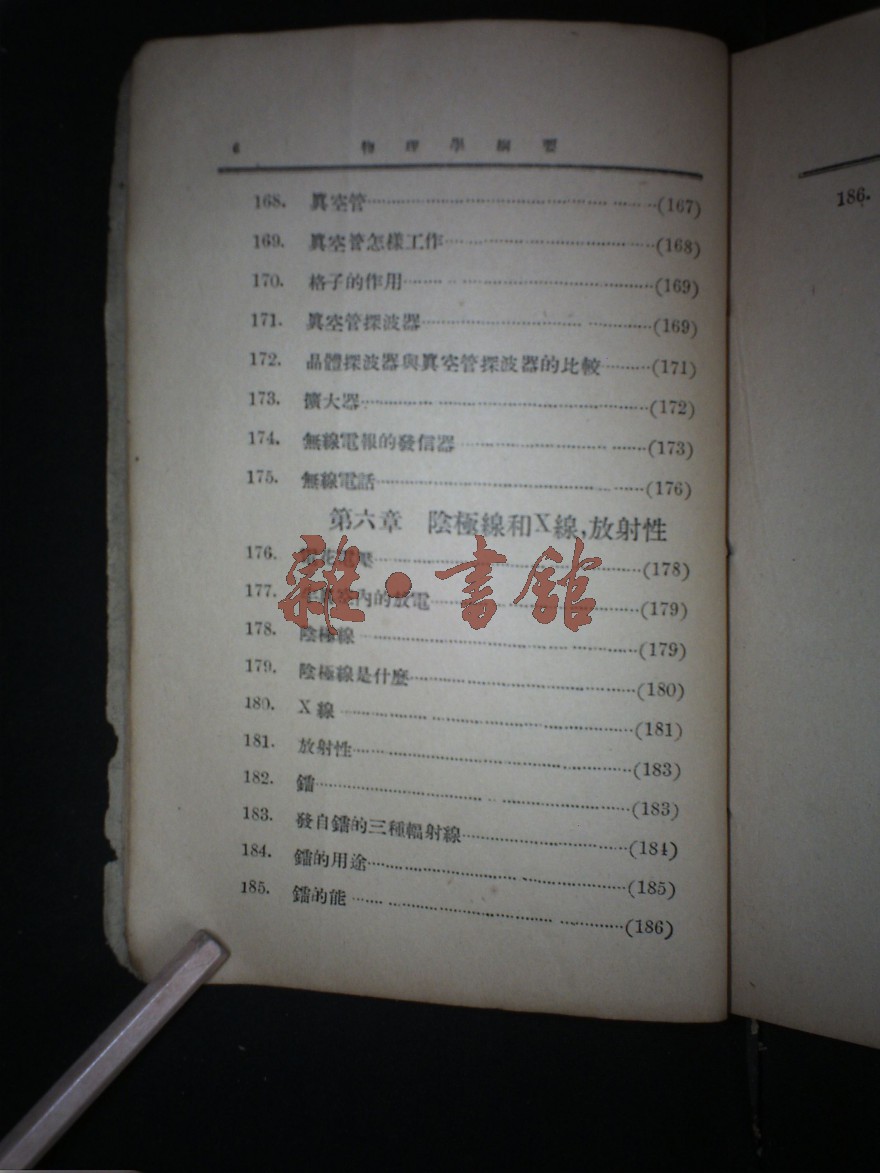 6 物理學綱要
168. 眞空管(167)
169. 眞空管怎樣工作(168)
170. 格子的作用(169)
171. 眞空管探波器(169)
172. 晶體探波器與眞空管探波器的比較(171)
173. 擴大器(172)
174. 無線電報的發信器(173)
175. 無線電話(176)
第六章 陰極線和X線,放射性
176. (178)
177. 空內的放電(179)
178. 陰極線(179)
179. 陰極線是什麼(180)
180. X線(181)
181. 放射性(183)
182. 鐳(183)
183. 發自鐳的三種輻射線(184)
184. 鐳的用途(185)
185. 鐳的能(186)
186.
雜·書館